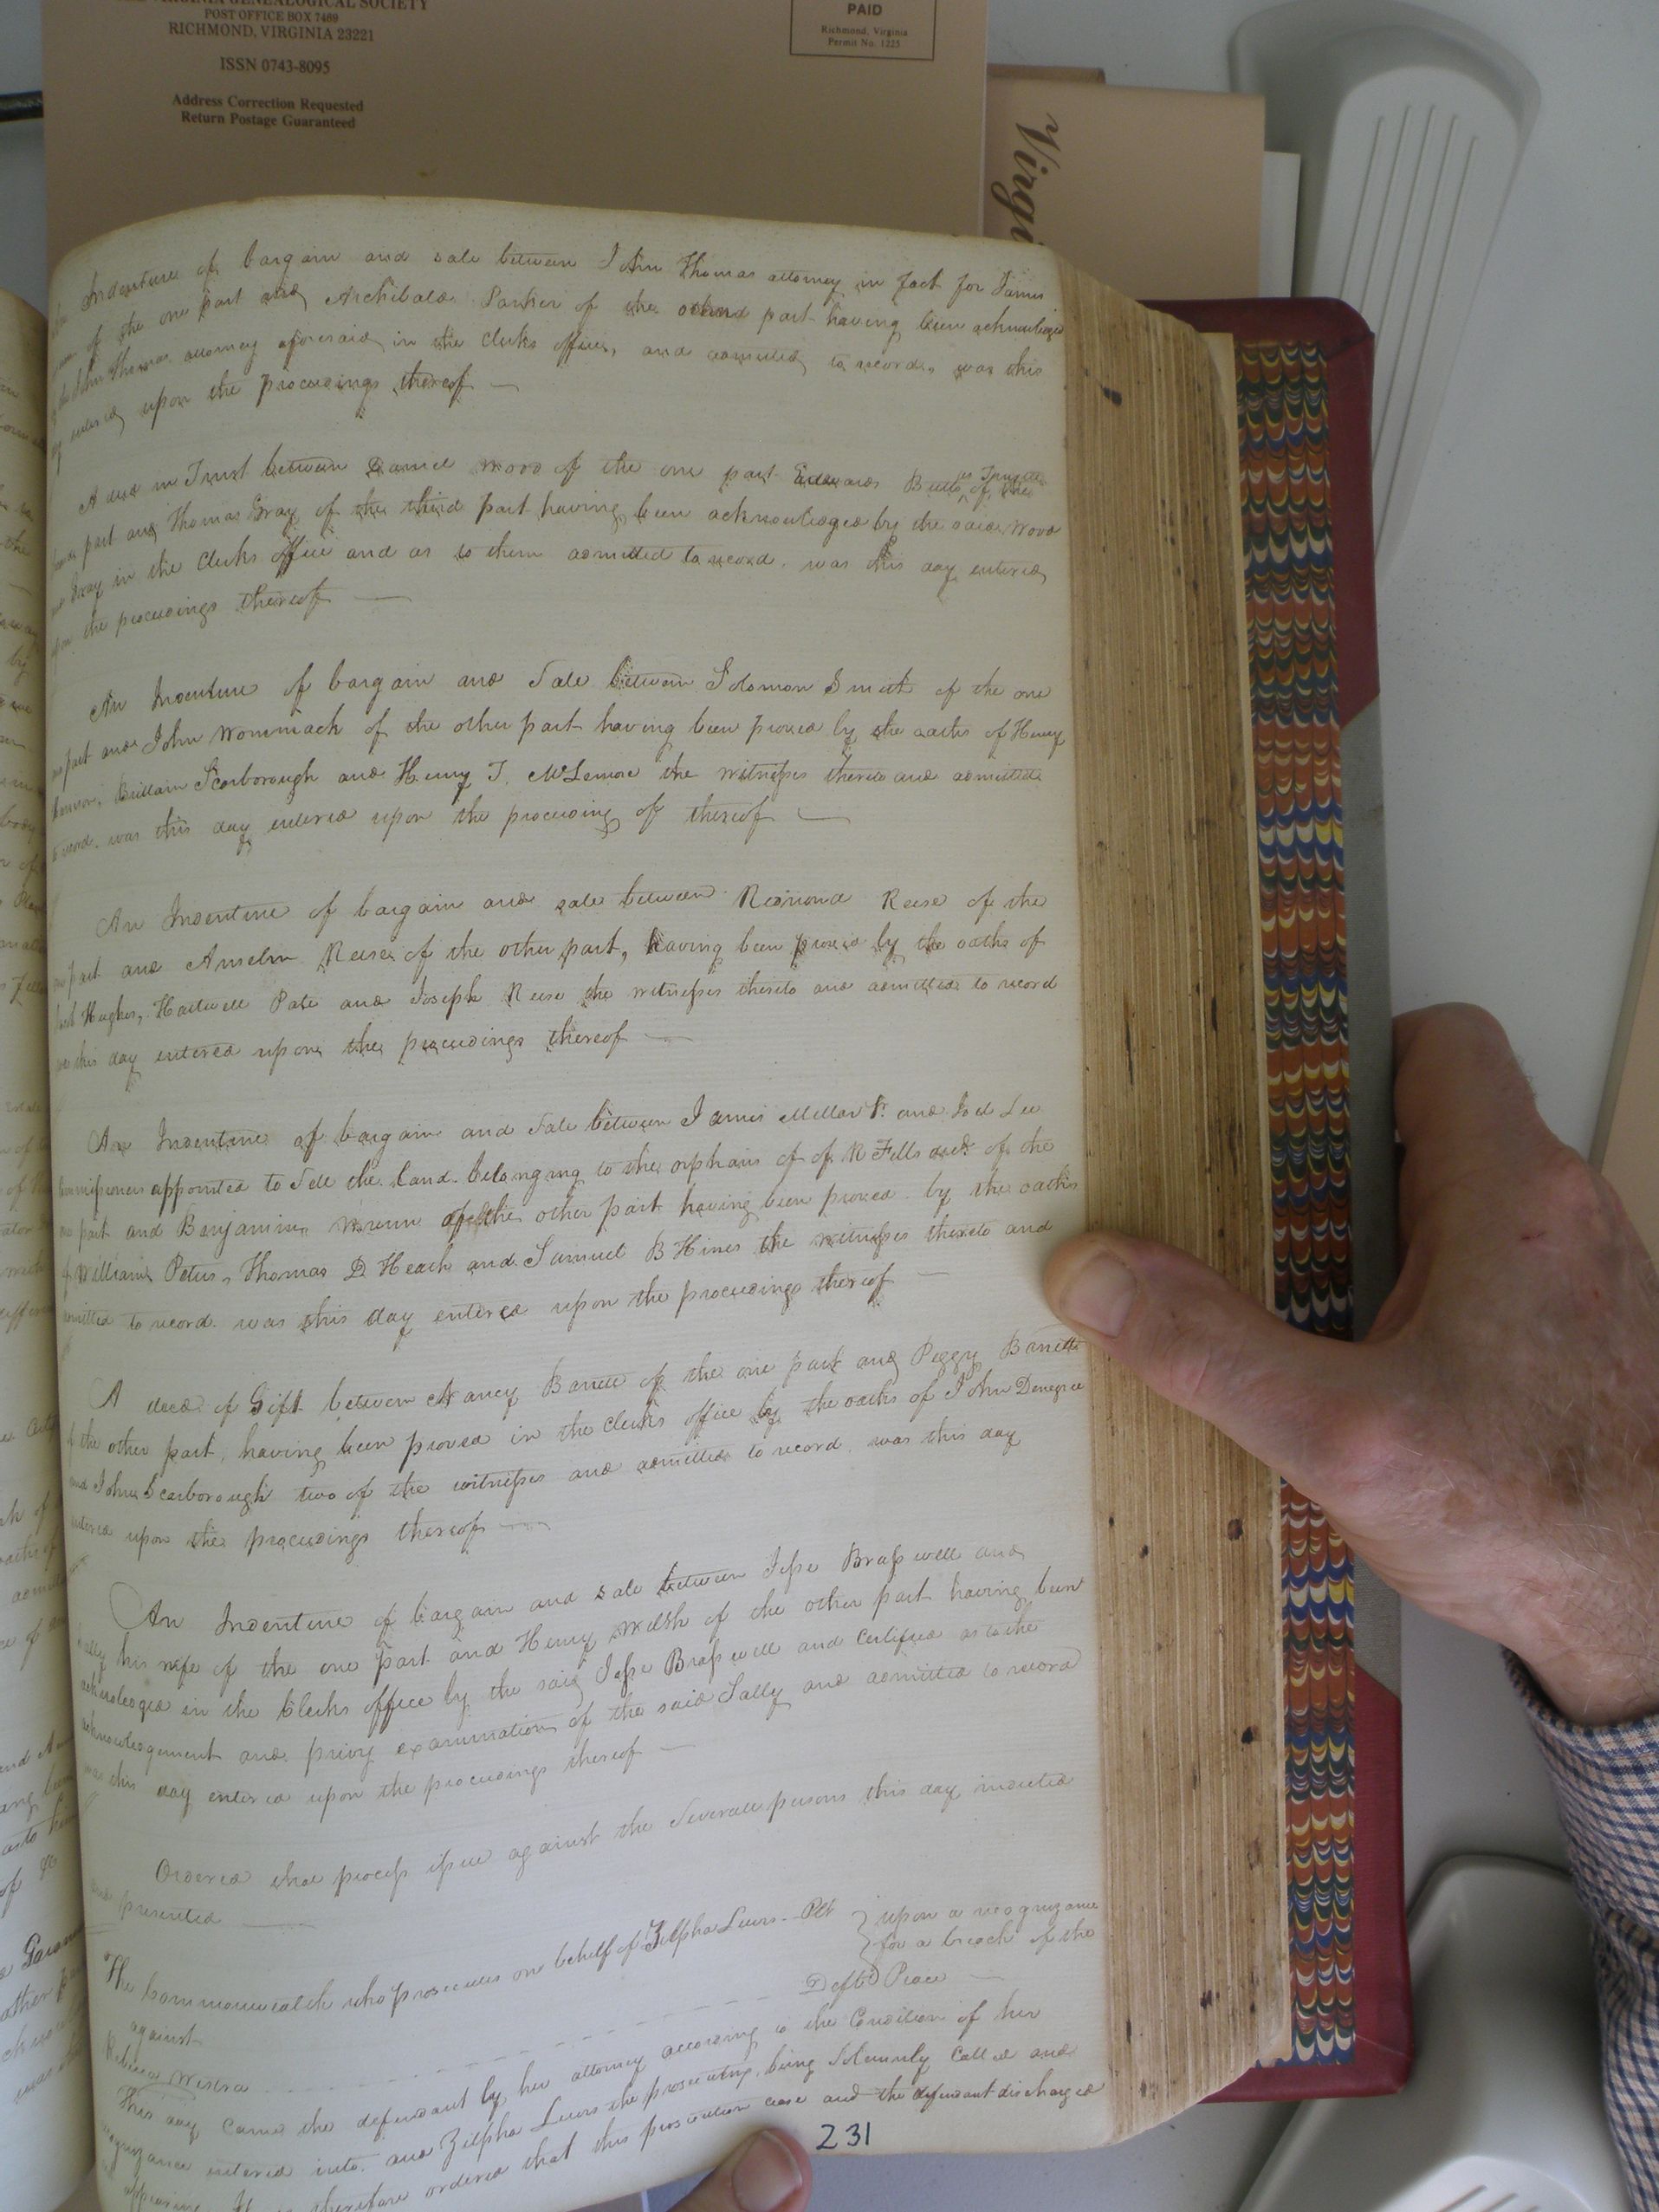 VIRGINIA GENEALOGICAL SOCIETY
POST OFFICE BOX 7469
RICHMOND, VIRGINIA 23221
ISSN 0743-8095
Address Correction Requested
Return Postage Guaranteed
PAID
Richmond, Virginia
Permit No. 1225
Virgi
Indenture of bargain and sale between John Thomas attorney in fact for James
of the one part and Archibald Parker of the other part having been acknowledged
John Thomas attorney aforesaid in the Clerks office, and admitted to record, was this
entered upon the proceedings thereof
A deed in Trust between Daniel Wood of the one part Edward Butts as Trustee of the
part and Thomas Gray of the third part having been acknowledged by the said Wood
Gray in the Clerks office and as to them admitted to record, was this day entered
upon the proceedings thereof
An Indenture of bargain and Sale between Solomon Smith of the one
part and John Wommack of the other part having been proved by the oaths of Henry
Brittain Scarborough and Henry T. McLemore the witnesses thereto and admitted
to record. was this day entered upon the proceeding of thereof
An Indenture of bargain and sale between Redmond Reese of the
one part and Anselm Reese of the other part, having been proved by the oaths of
Hughes, Hartwell Pate and Joseph Reese the witnesses thereto and admitted to record
was this day entered upon the proceedings thereof
An Indenture of bargain and Sale between James Millar Sr. and Joel Lee
Commissioners appointed to Sell the land belonging to the orphans of of R Fells decd. of the
one part and Benjamin Wrenn of the other part having been proved by the oaths
of William Peters, Thomas D Heath and Samuel B Hines the witnesses thereto and
admitted to record was this day entered upon the proceedings thereof
A deed of Gift between Nancy Barrett of the one part and Peggy Barrett
of the other part, having been proved in the Clerks office by the oaths of John Denegre
and John Scarborough two of the witnesses and admitted to record, was this day
entered upon the proceedings thereof
An Indenture of bargain and sale between Jesse Brasswell and
Sally his wife of the one part and Henry Welsh of the other part having been
acknowledged in the Clerks office by the said Jesse Brasswell and Certified as to the
acknowledgement and privy examination of the said Sally and admitted to record
was this day entered upon the proceedings thereof
Ordered that process issue against the Severall persons this day indicted
and presented
The Commonwealth who prosecutes on behalf of Zilpha Lewis Plt
upon a recognizance
against
for a breach of the
Rebecca Westra
Deft Peace
This day came the defendant by her attorney according to the Condition of her
recognizance entered into. and Zilpha Lewis the prosecutrix, being solemnly called and
therefore ordered that this prosecution cease and the defendant discharged
231